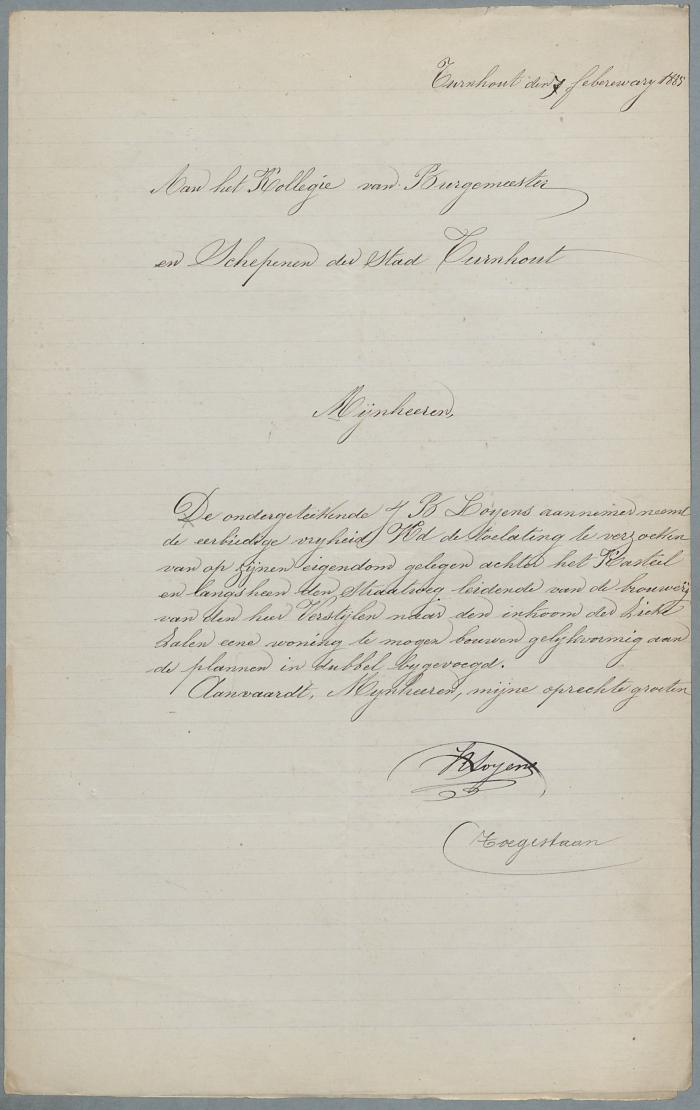 Turnhout den 7 feberewary 1885
Aan het Kollegie van Burgemeester
en Schepenen der Stad Turnhout
Mijnheeren,
De ondergeteikende J B Loyens aannemer neemt
de eerbiedige vryheid Ud de toelating te verzoeken
van op zijnen eigendom gelegen achter het Kasteel
en langsheen den Straatweg leidende van de brouwerij
van den heer Verstijlen naar den inkoom der
Zalen eene woning te mogen bouwen gelykvormig aan
de plannen in dubbel bygevoegd.
Aanvaardt, Mynheeren, mijne oprechte groeten
Loyens
Toegestaan